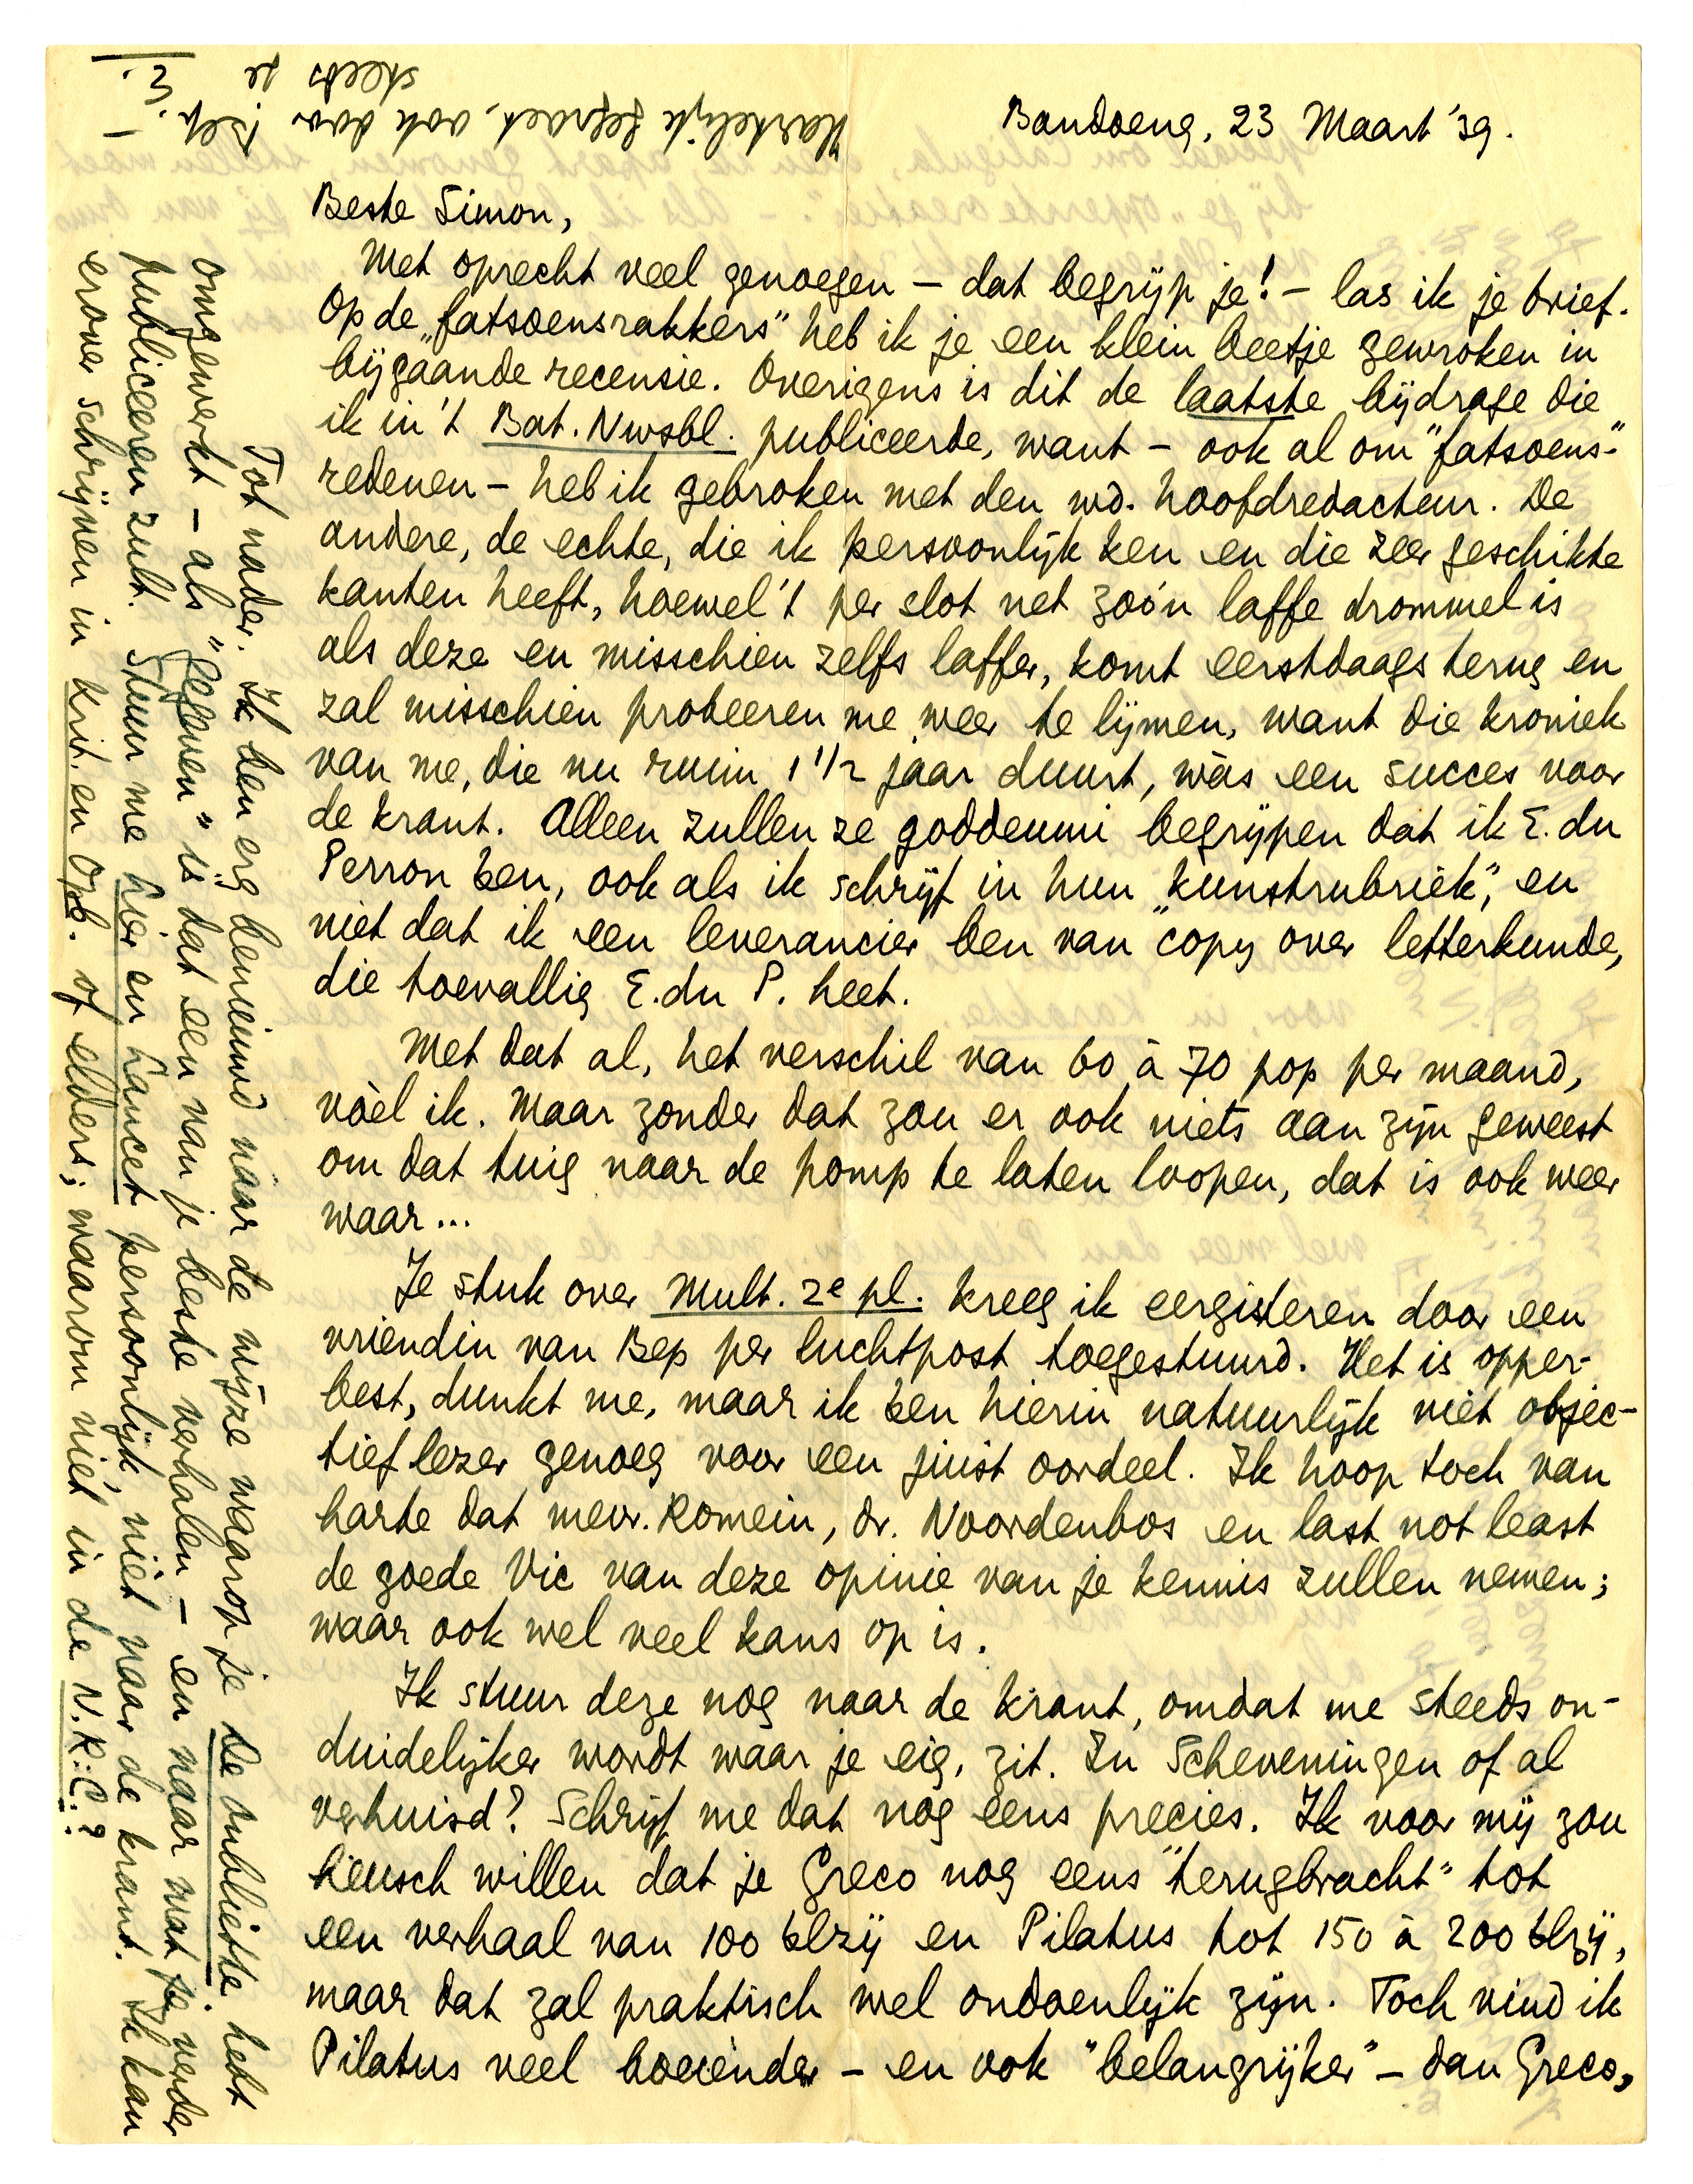 Bandoeng, 23 Maart '39.
Beste Simon,
Met oprecht veel genoegen — dat begrijp je! — las ik je brief.
Op de „fatsoensrakkers" heb ik je een klein beetje gewroken in
bijgaande recensie. Overigens is dit de laatste bijdrage die
ik in 't Bat. Nwsbl. publiceerde, want — ook al om "fatsoens-"
redenen — heb ik gebroken met den wd. hoofdredacteur. De
andere, de echte, die ik persoonlijk ken en die zeer geschikte
kanten heeft, hoewel 't per slot net zóó'n laffe drommel is
als deze en misschien zelfs laffer, komt eerstdaags terug en
zal misschien probeeren me weer te lijmen, want die kroniek
van me, die nu ruim 1 1/2 jaar duurt, wàs een succes voor
de krant. Alleen zullen ze goddeumi begrijpen dat ik E. du
Perron ben, ook als ik schrijf in hun „kunstrubriek", en
niet dat ik een leverancier ben van "copy over letterkunde,
die toevallig E. du P. heet.
Met dat al, het verschil van 60 à 70 pop per maand,
vòel ik. Maar zonder dat zou er ook niets aan zijn geweest
om dat tuig naar de pomp te laten loopen, dat is ook weer
waar...
Je stuk over Mult. 2e pl. kreeg ik eergisteren door een
vriendin van Bep per luchtpost toegestuurd. Het is opper-
best, dunkt me, maar ik ben hierin natuurlijk niet objec-
tief lezer genoeg voor een juist oordeel. Ik hoop toch van
harte dat mevr. Romein, dr. Noordenbos en last not least
de goede Vic van deze opinie van je kennis zullen nemen;
waar ook wel veel kans op is.
Ik stuur deze nog naar de krant, omdat me steeds on-
duidelijker wordt waar je eig. zit. In Scheveningen of al
verhuisd? Schrijf me dat nog eens precies. Ik voor mij zou
heusch willen dat je Greco nog eens "terugbracht" tot
een verhaal van 100 blzij en Pilatus tot 150 à 200 blzij,
maar dat zal praktisch wel ondoenlijk zijn. Toch vind ik
Pilatus veel boeiender — en ook "belangrijker" — dan Greco,
Tot nader. Ik ben erg benieuwd naar de wijze waarop je De oubliette hebt
omgewerkt — als "gegeven" is dat een van je beste verhalen — en naar wat je verder
publiceeren zult. Stuur me hier en Lancet persoonlijk, niet naar de krant. Ik kan
erover schrijven in Krit. en Opb. of elders; waarom niet in de N.R.C.?
Hartelijk gegroet, ook door Bep.
steeds je
E.